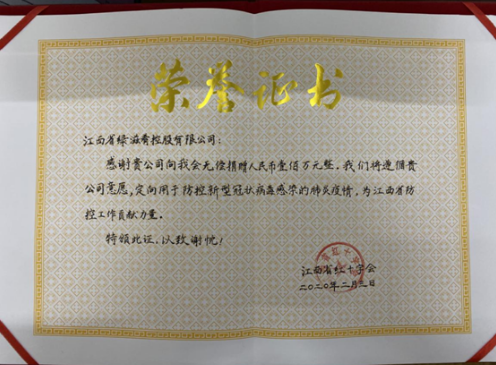 荣誉证书
江西省绿滋肴控股有限公司：
感谢贵公司向我会无偿捐赠人民币壹佰万元整。我们将遵循贵
公司意愿，定向用于防控新型冠状病毒感染的肺炎疫情，为江西省防
控工作贡献力量。
特颁此证，以致谢忱！
江西省红十字会
二〇二〇年二月三日